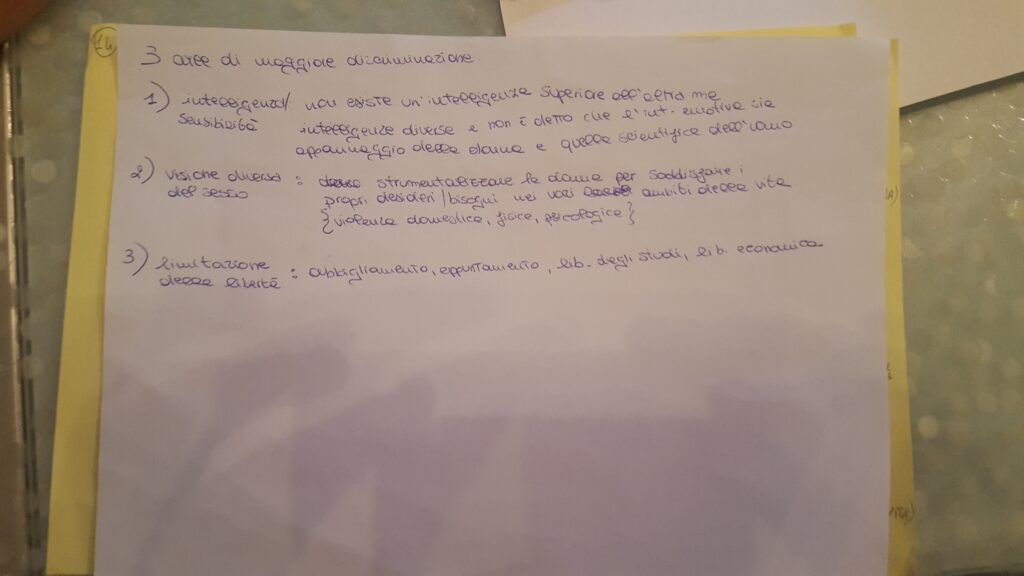 14
3 aree di maggiore discriminazione
1) intelligenza/ non esiste un'intelligenza superiore all'altra ma
sensibilità intelligenze diverse e non è detto che l'int. emotiva sia
appannaggio della donna e quella scientifica dell'uomo
2) visione diversa : strumentalizzare la donna per soddisfare i
del sesso propri desideri/bisogni nei vari ambiti della vita
{violenza domestica, fisica, psicologica}
3) limitazione : abbigliamento, appuntamento, lib. degli studi, lib. economica
della libertà